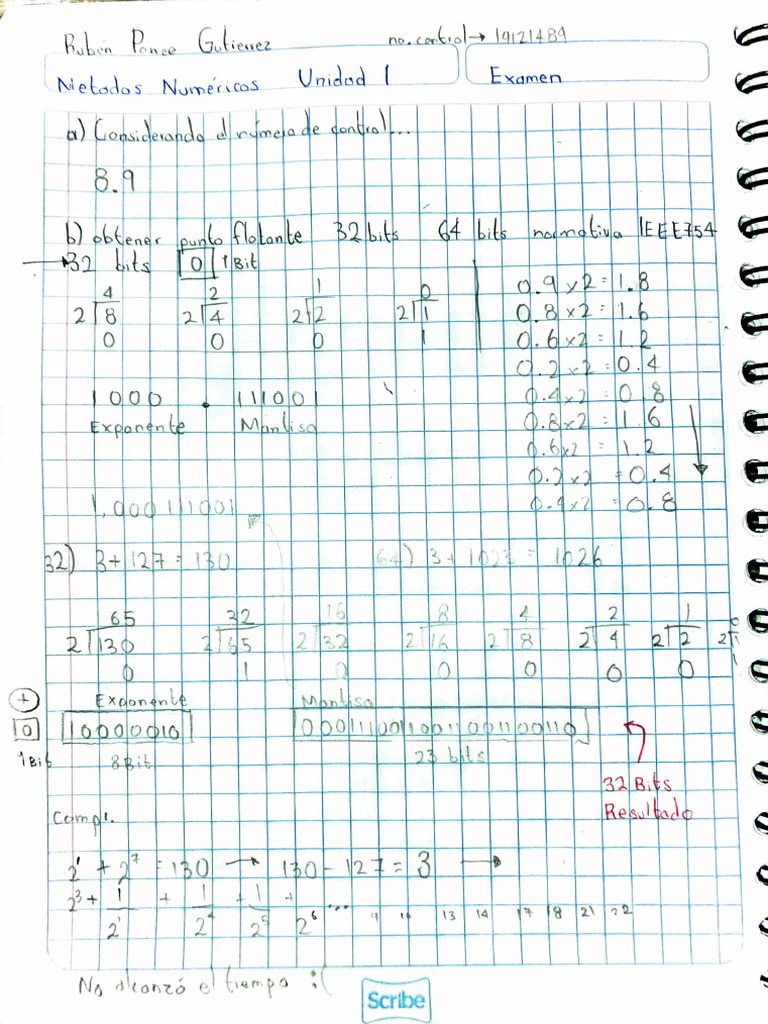 Rubén Ponce Gutierrez no. control → 19121489
Metodos Numéricos Unidad 1 Examen
a) Considerando el número de control...
8.9
b) obtener punto flotante 32 bits 64 bits normativa IEEE754
→ 32 bits 0 1 Bit
4 2 1 0
2 8 2 4 2 2 2 1
0 0 0 1
0.9 x 2 = 1.8
0.8 x 2 = 1.6
0.6 x 2 = 1.2
0.2 x 2 = 0.4
0.4 x 2 = 0.8
0.8 x 2 = 1.6
0.6 x 2 = 1.2
0.2 x 2 = 0.4
0.4 x 2 = 0.8
1000 . 111001
Exponente Mantisa
1,000111001
32) 3 + 127 = 130 64) 3 + 1023 = 1026
65 32 16 8 4 2 1 0
2 130 2 65 2 32 2 16 2 8 2 4 2 2 2 1
0 1 0 0 0 0 0 1
+ Exponente Mantisa
0 10000010 00011100110011001100110
1 Bit 8 Bit 23 bits
32 Bits
Resultado
Comp1.
2¹ + 2⁷ = 130 → 130 - 127 = 3 →
2³ + 1 + 1 + 1 + ...
2¹ 2⁴ 2⁵ 2⁶ 9 10 13 14 17 18 21 22
No alcanzó el tiempo :(
Scribe